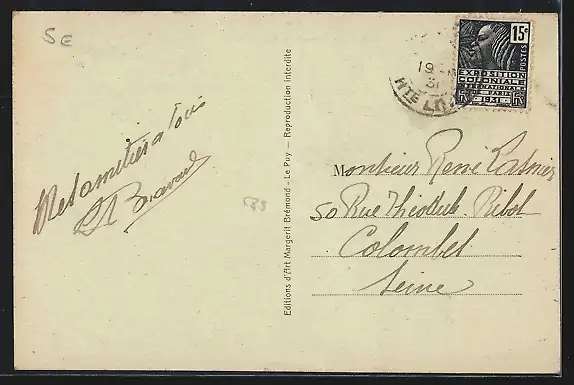 SE
15c
POSTES
EXPOSITION
COLONIALE
INTERNATIONALE
PARIS
1931
19
31
HTE LOI
Mes amitiés à tous
Editions d'Art Margerit Brémond - Le Puy — Reproduction interdite
Monsieur René
50 Rue Théodule Ribot
Colombes
Seine